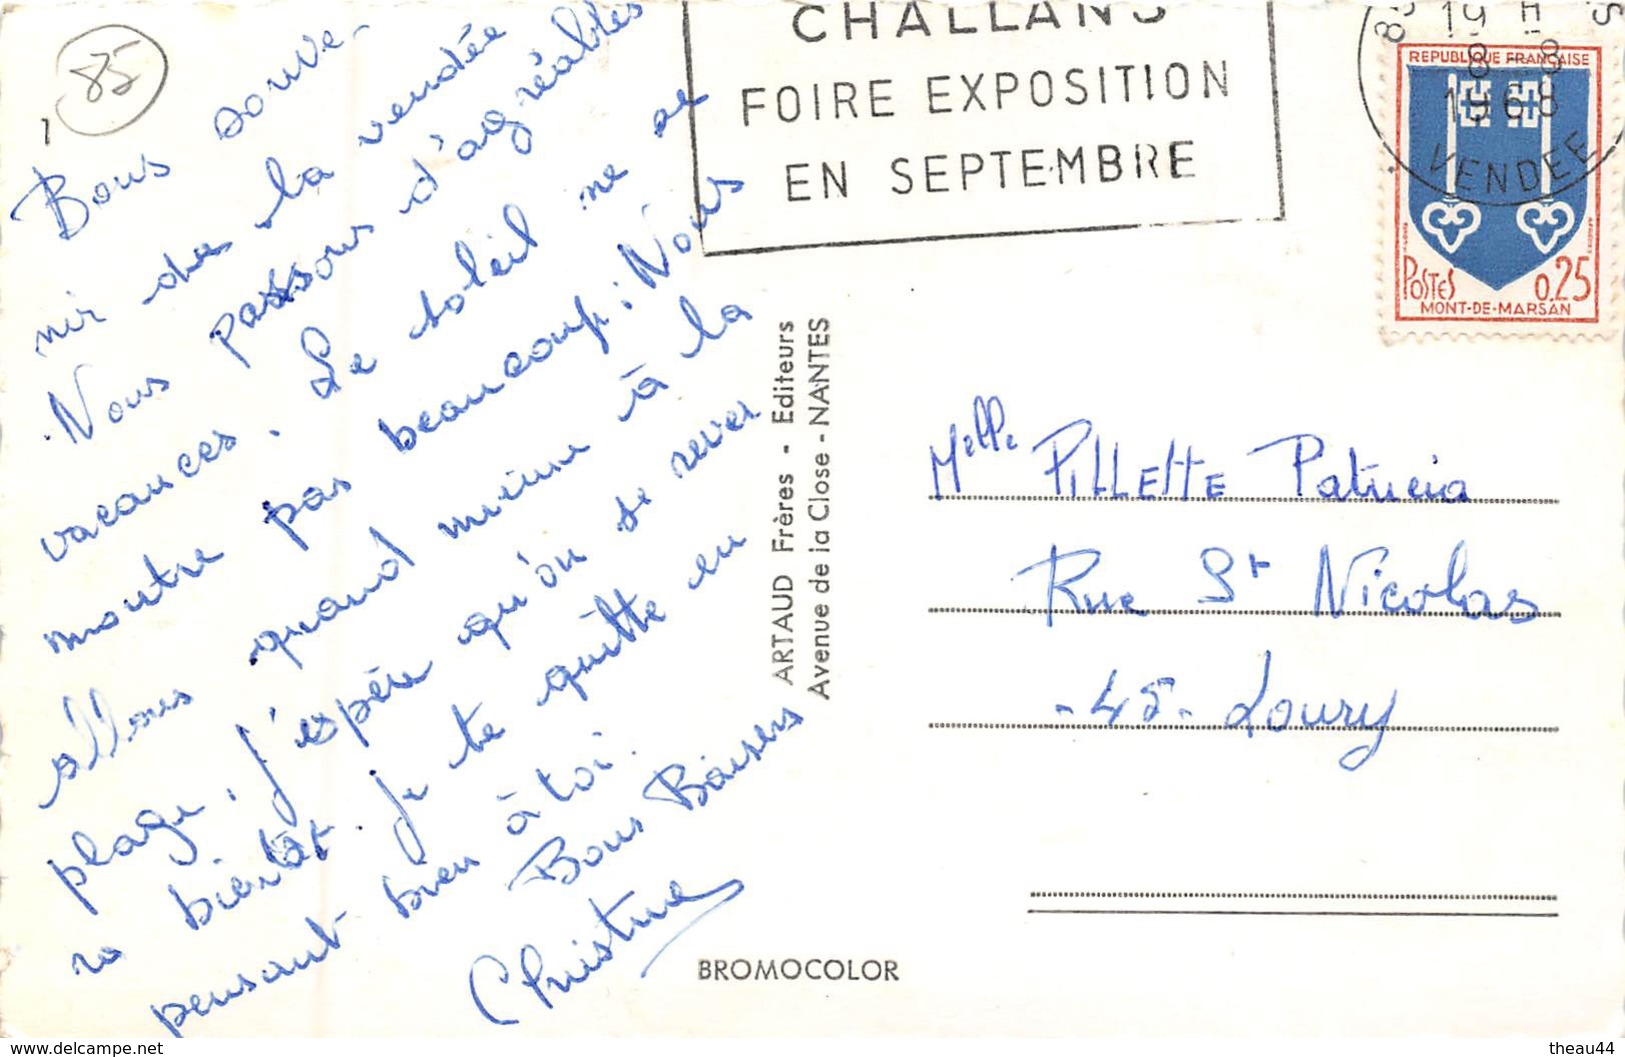 85
Bons souve-
nir de la vendée
Nous passons d'agréables
vacances. Le soleil ne se
montre pas beaucoup. Nous
allons quand même à la
plage. J'espère qu'on se rever
ra bientôt. Je te quitte en
pensant bien à toi.
Bons Baisers
Christine
CHALLANS
FOIRE EXPOSITION
EN SEPTEMBRE
19 H
8-8
1968
VENDEE
REPUBLIQUE FRANÇAISE
POSTES 0,25
MONT-DE-MARSAN
ARTAUD Frères - Editeurs
Avenue de la Close - NANTES
Melle PILLETTE Patricia
Rue St Nicolas
- 45 - Loury
BROMOCOLOR
www.delcampe.net
theau44